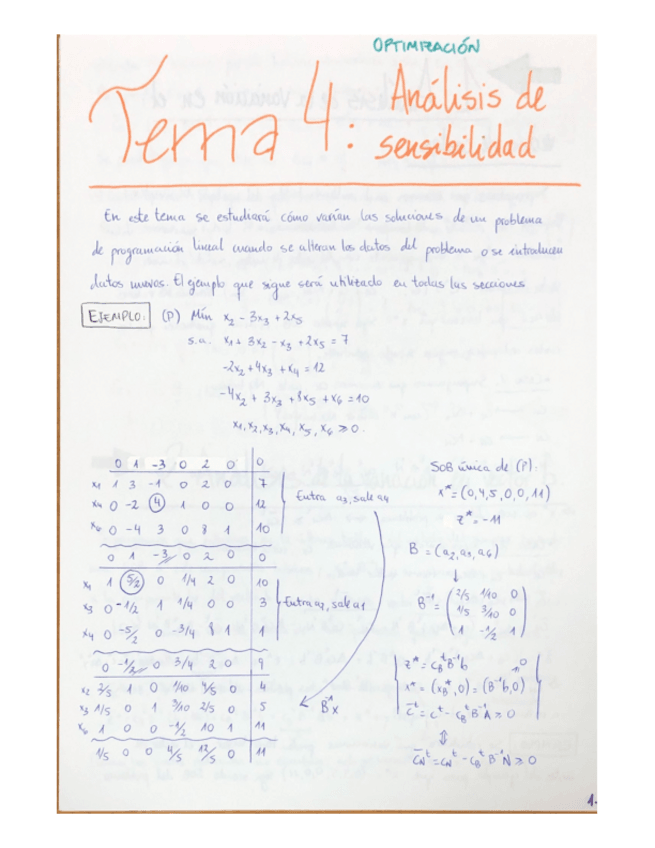 OPTIMIZACIÓN
Tema 4: Análisis de
sensibilidad
En este tema se estudiará cómo varían las soluciones de un problema
de programación lineal cuando se alteran los datos del problema o se introducen
datos nuevos. El ejemplo que sigue será utilizado en todas las secciones
EJEMPLO: (P) Mín x₂ - 3x₃ + 2x₅
s.a. x₁ + 3x₂ - x₃ + 2x₅ = 7
-2x₂ + 4x₃ + x₄ = 12
-4x₂ + 3x₃ + 8x₅ + x₆ = 10
x₁, x₂, x₃, x₄, x₅, x₆ ≥ 0.
0 1 -3 0 2 0 | 0
x₁ 1 3 -1 0 2 0 | 7
x₄ 0 -2 4 1 0 0 | 12
x₆ 0 -4 3 0 8 1 | 10
Entra a₃, sale a₄
0 1 -3 0 2 0 | 0
x₁ 1 5/2 0 1/4 2 0 | 10
x₃ 0 -1/2 1 1/4 0 0 | 3
x₄ 0 -5/2 0 -3/4 8 1 | 1
Entra a₂, sale a₁
0 -1/2 0 3/4 2 0 | 9
x₂ 2/5 1 0 1/10 4/5 0 | 4
x₃ 1/5 0 1 3/10 2/5 0 | 5
x₆ 1 0 0 -1/2 10 1 | 11
1/5 0 0 4/5 12/5 0 | 11
B⁻¹x
SOB única de (P):
x* = (0,4,5,0,0,11)
z* = -11
B = (a₂, a₃, a₆)
↓
B⁻¹ = ( 2/5 1/10 0
1/5 3/10 0
1 -1/2 1 )
z* = c_Bᵗ B⁻¹b
x* = (x_B*, 0) = (B⁻¹b, 0)
c̄ᵗ = cᵗ - c_Bᵗ B⁻¹A ≥ 0
⇕
c̄_Nᵗ = c_Nᵗ - c_Bᵗ B⁻¹N ≥ 0
1.